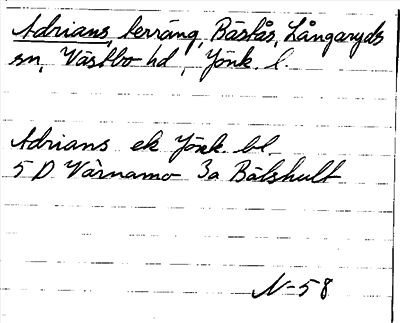 Adrians, terräng, Båstås, Långaryds
sn, Västbo hd, Jönk. l.
Adrians ek Jönk. bl.
5 D Värnamo 3a Bälshult
N-58